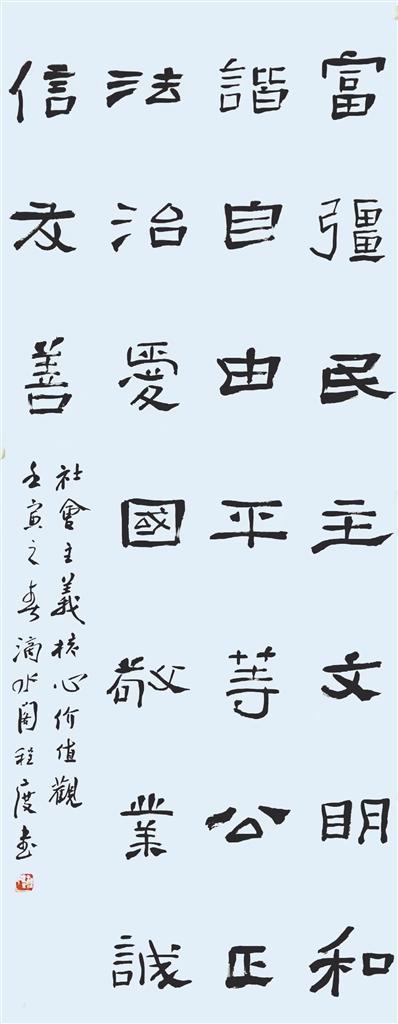 富彊民主文明和
諧自由平等公正
法治愛國敬業誠
信友善
社會主義核心价值觀
壬寅之春滴水閣程度書